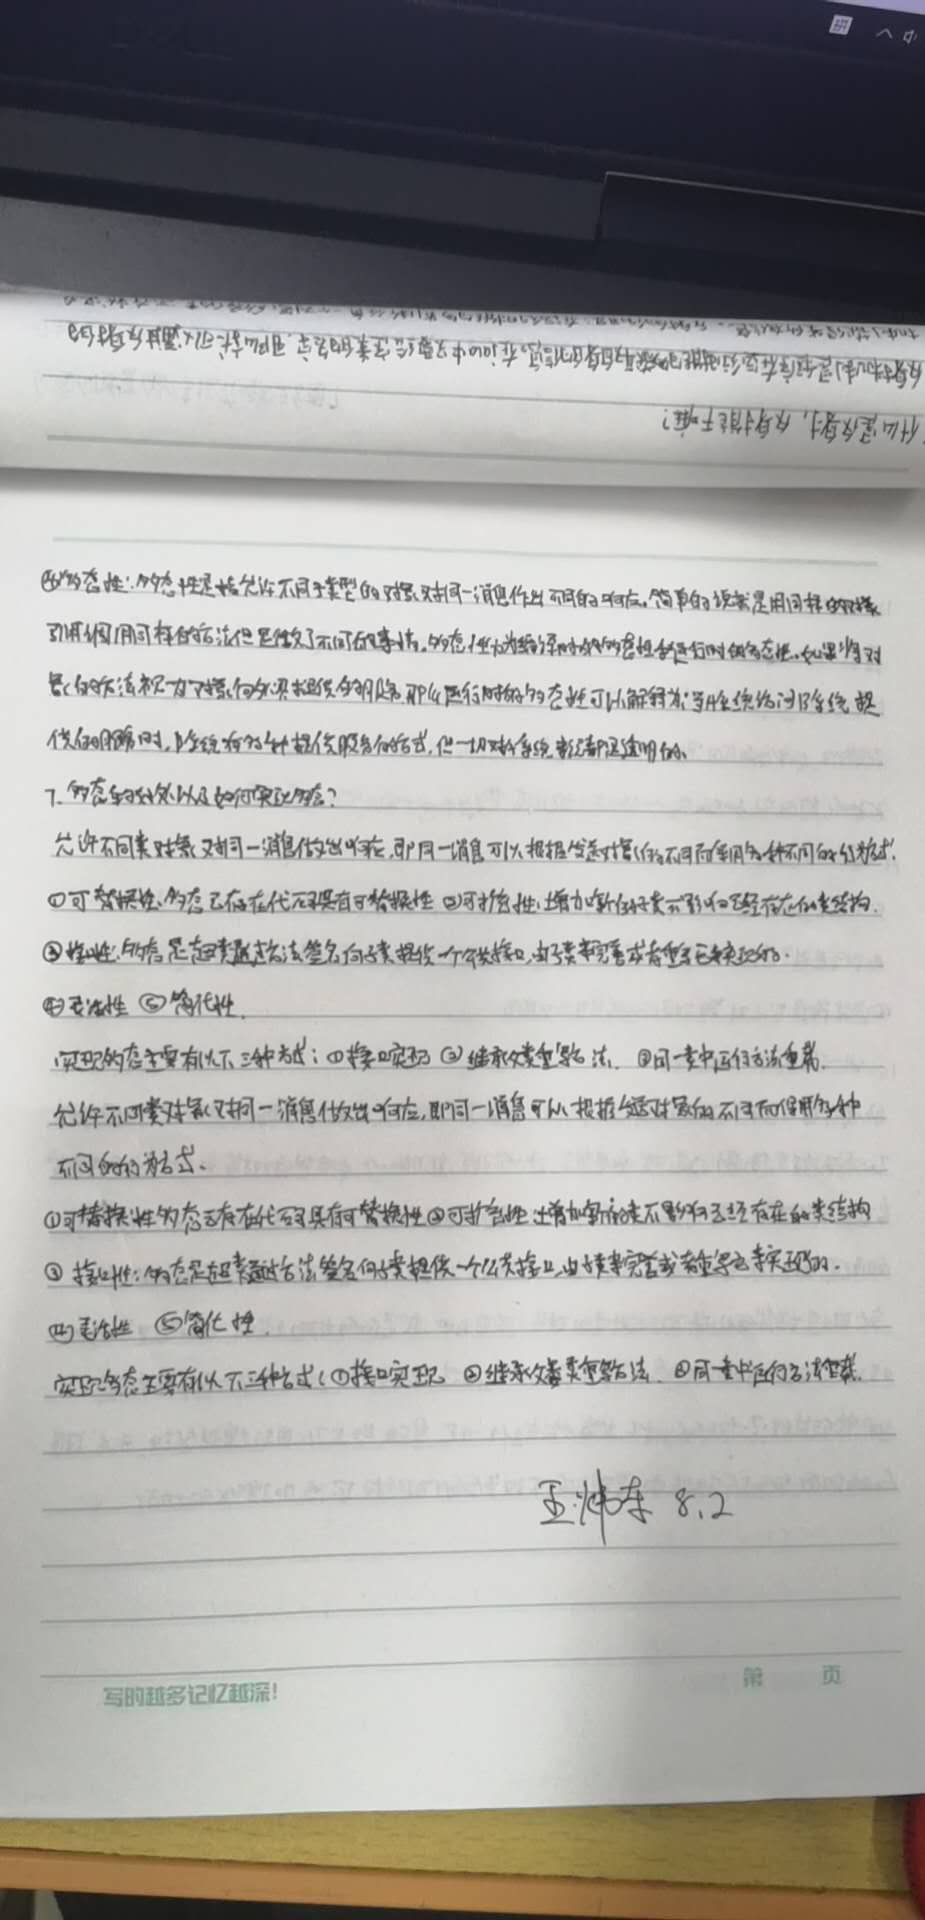 什么是反射,反射能干嘛?
④多态性:多态性是指允许不同子类型的对象对同一消息作出不同的响应。简单的说就是用同样的对象
引用调用同样的方法但是做了不同的事情。多态性分为编译时的多态性和运行时的多态性。如果将对
象的方法视为对象向外界提供的服务,那么运行时的多态性可以解释为:当A系统访问B系统提
供的服务时,B系统有多种提供服务的方式,但一切对A系统来说都是透明的。
7.多态的好处以及如何实现多态?
允许不同类对象对同一消息做出响应,即同一消息可以根据发送对象的不同而采用多种不同的行为方式.
①可替换性:多态已存在代码具有可替换性 ②可扩充性:增加新的子类不影响已经存在的类结构.
③接口性:多态是超类通过方法签名向子类提供一个公共接口,由子类来完善或者重写它来实现的.
④灵活性 ⑤简化性.
实现多态主要有以下三种方式:①接口实现 ②继承父类重写方法. ③同一类中进行方法重载.
允许不同类对象对同一消息做出响应,即同一消息可以根据发送对象的不同而使用多种
不同的行为方式.
①可替换性 多态已存在代码具有可替换性 ②可扩充性:增加新的类不影响已经存在的类结构
③接口性:多态是超类通过方法签名向子类提供一个公共接口,由子类来完善或者重写它来实现的.
④灵活性 ⑤简化性.
实现多态主要有以下三种方式:①接口实现 ②继承父类重写方法. ③同一类中进行方法重载.
王炜东 8.2
写的越多记忆越深!
第 页